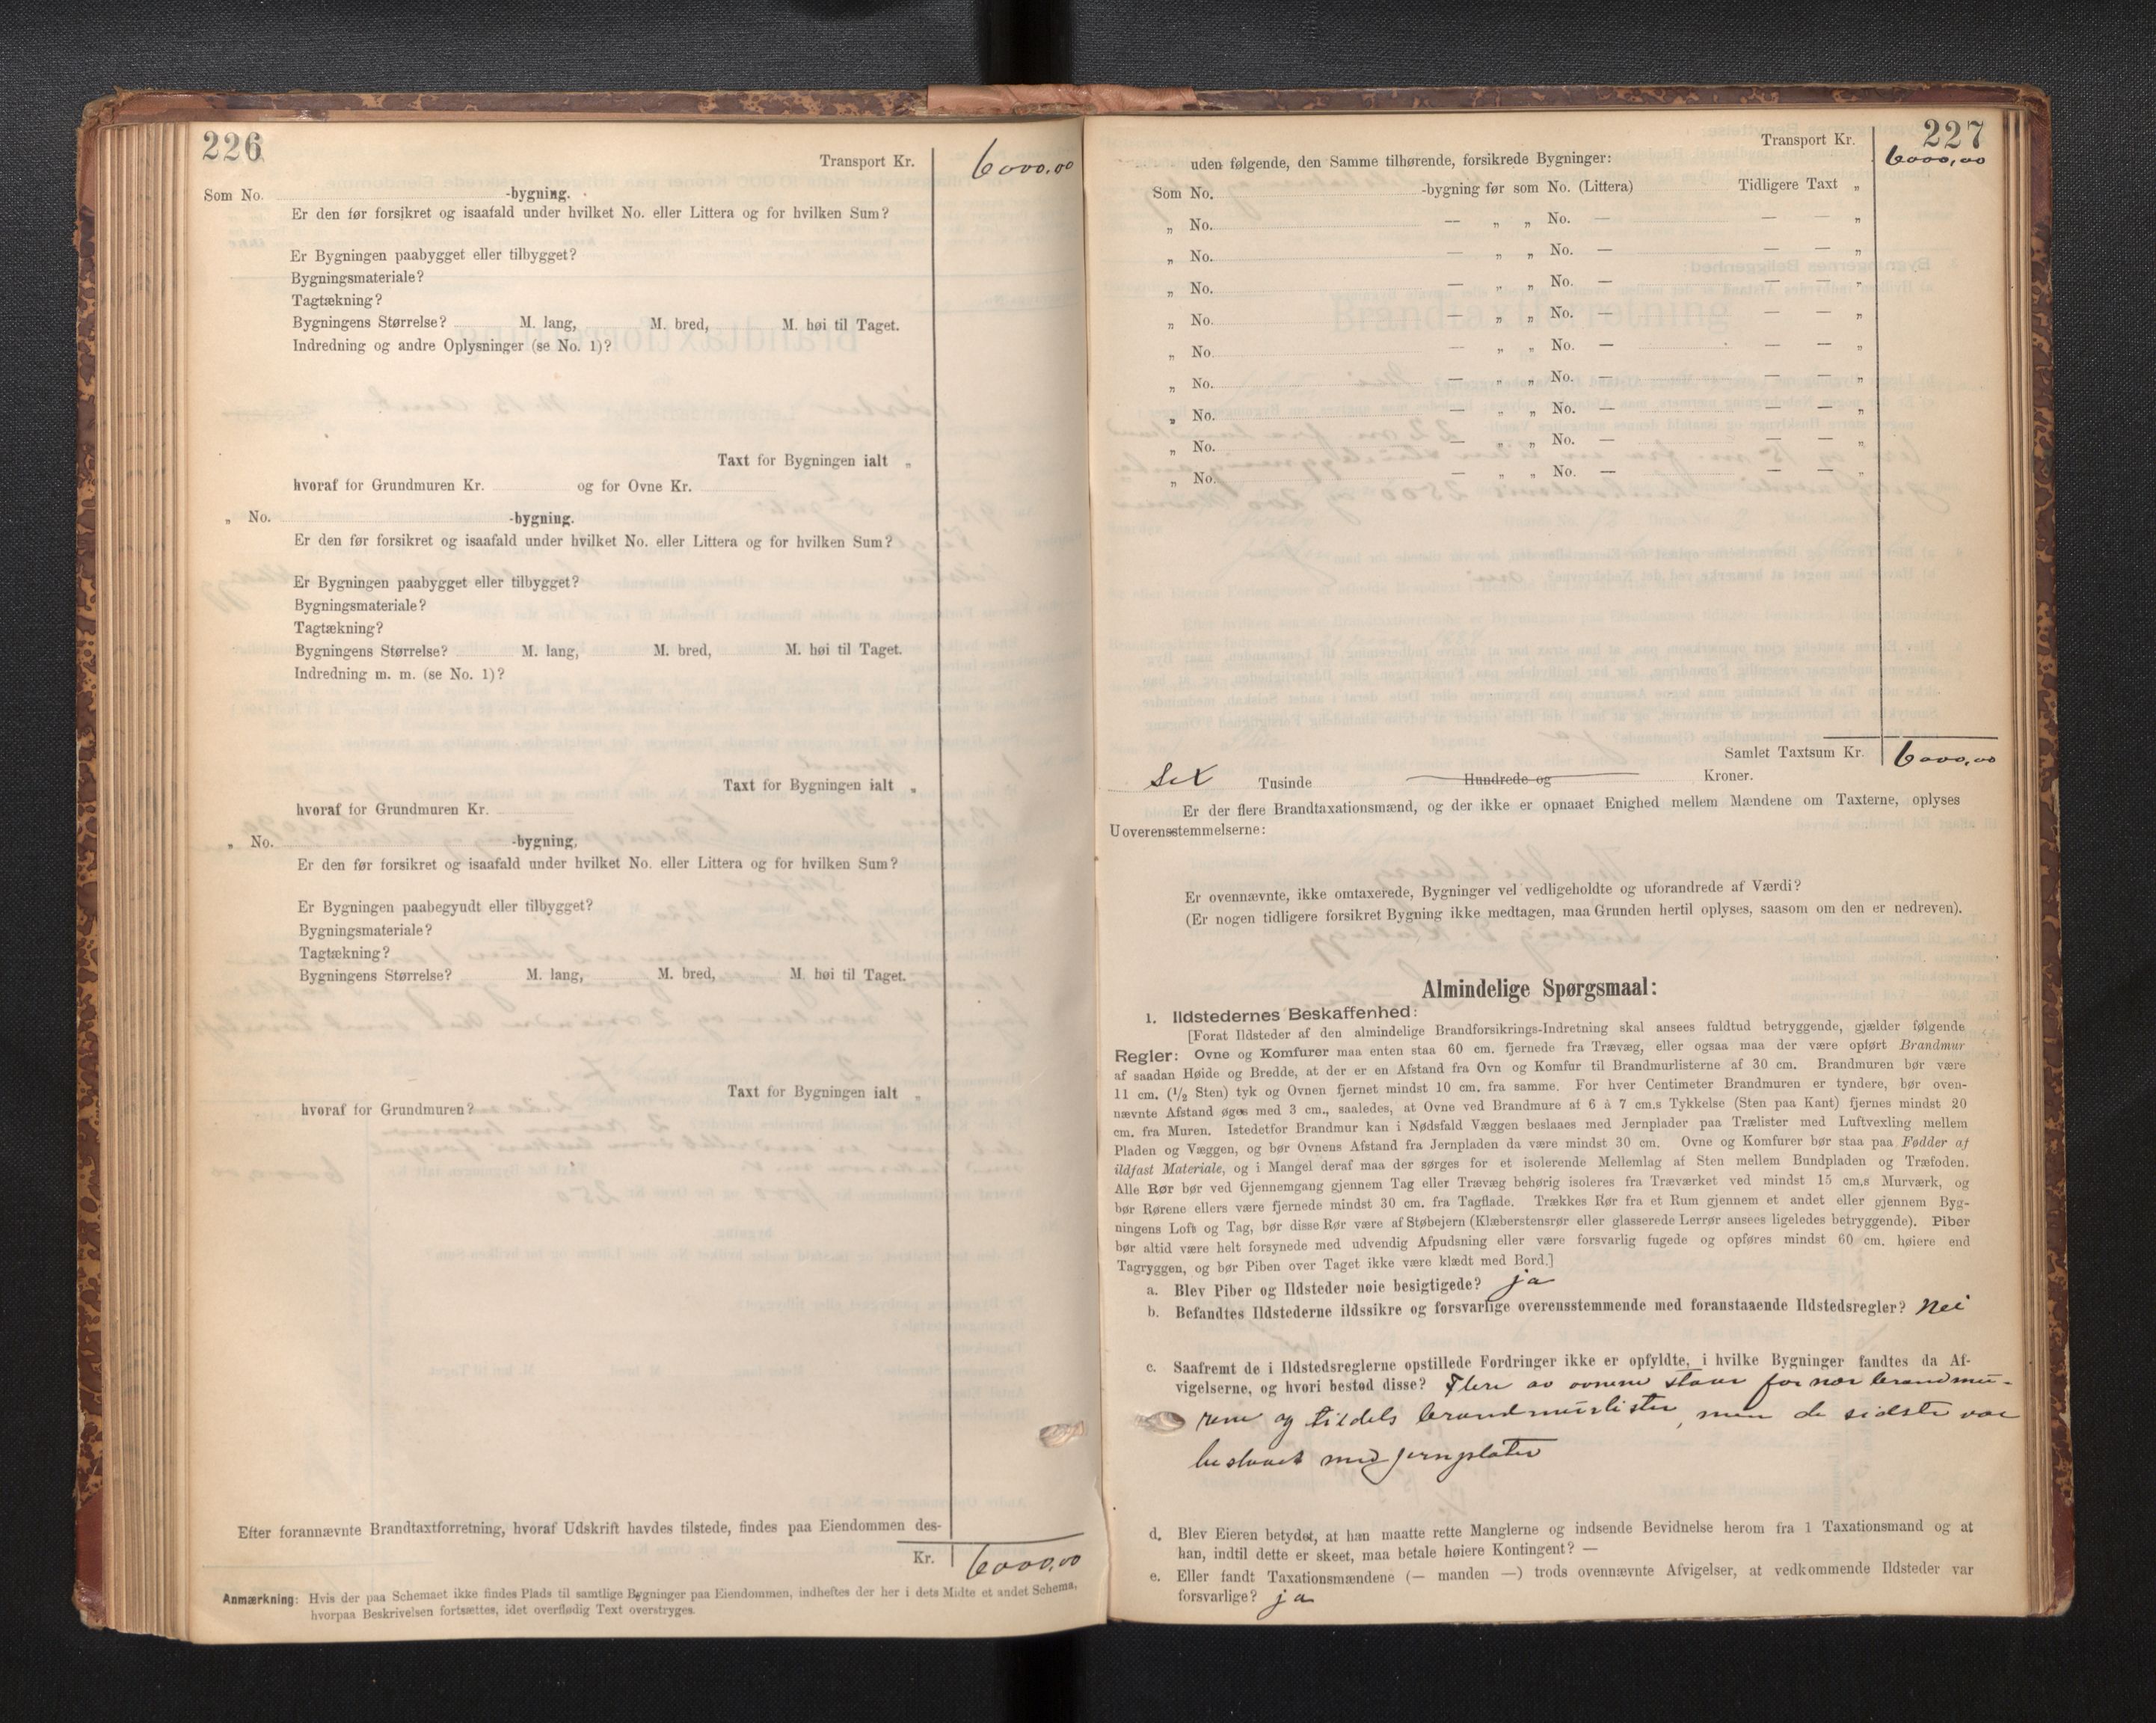 226
Transport Kr. 6000,00
Som No. -bygning.
Er den før forsikret og isaafald under hvilket No. eller Littera og for hvilken Sum?
Er Bygningen paabygget eller tilbygget?
Bygningsmateriale?
Tagtækning?
Bygningens Størrelse? M. lang, M. bred, M. høi til Taget.
Indredning og andre Oplysninger (se No. 1)?
Taxt for Bygningen ialt „
hvoraf for Grundmuren Kr. og for Ovne Kr.
„ No. -bygning.
Er den før forsikret og isaafald under hvilket No. eller Littera og for hvilken Sum?
Er Bygningen paabygget eller tilbygget?
Bygningsmateriale?
Tagtækning?
Bygningens Størrelse? M. lang, M. bred, M. høi til Taget.
Indredning m. m. (se No. 1)?
Taxt for Bygningen ialt „
hvoraf for Grundmuren Kr.
„ No. -bygning.
Er den før forsikret og isaafald under hvilket No. eller Littera og for hvilken Sum?
Er Bygningen paabegyndt eller tilbygget?
Bygningsmateriale?
Tagtækning?
Bygningens Størrelse? M. lang, M. bred, M. høi til Taget.
Taxt for Bygningen ialt „
hvoraf for Grundmuren?
Efter forannævnte Brandtaxtforretning, hvoraf Udskrift havdes tilstede, findes paa Eiendommen des-
Kr. 6000,00
Anmærkning: Hvis der paa Schemaet ikke findes Plads til samtlige Bygninger paa Eiendommen, indheftes der her i dets Midte et andet Schema,
hvorpaa Beskrivelsen fortsættes, idet overflødig Text overstryges.
227
Transport Kr. 6000,00
uden følgende, den Samme tilhørende, forsikrede Bygninger:
Som No. -bygning før som No. (Littera) Tidligere Taxt „
„ No. — „ „ No. — — — „
„ No. — „ „ No. — — — „
„ No. — „ „ No. — — — „
„ No. — „ „ No. — — — „
„ No. — „ „ No. — — — „
„ No. — „ „ No. — — — „
„ No. — „ „ No. — — — „
„ No. — „ „ No. — — — „
„ No. — „ „ No. — — — „
Samlet Taxtsum Kr. 6000,00
Sex Tusinde Hundrede og Kroner.
Er der flere Brandtaxationsmænd, og der ikke er opnaaet Enighed mellem Mændene om Taxterne, oplyses
Uoverensstemmelserne:
Er ovennævnte, ikke omtaxerede, Bygninger vel vedligeholdte og uforandrede af Værdi?
(Er nogen tidligere forsikret Bygning ikke medtagen, maa Grunden hertil oplyses, saasom om den er nedreven).
Almindelige Spørgsmaal:
1. Ildstedernes Beskaffenhed:
[Forat Ildsteder af den almindelige Brandforsikrings-Indretning skal ansees fuldtud betryggende, gjælder følgende
Regler: Ovne og Komfurer maa enten staa 60 cm. fjernede fra Trævæg, eller ogsaa maa der være opført Brandmur
af saadan Høide og Bredde, at der er en Afstand fra Ovn og Komfur til Brandmurlisterne af 30 cm. Brandmuren bør være
11 cm. (1/2 Sten) tyk og Ovnen fjernet mindst 10 cm. fra samme. For hver Centimeter Brandmuren er tyndere, bør oven-
nævnte Afstand øges med 3 cm., saaledes, at Ovne ved Brandmure af 6 à 7 cm.s Tykkelse (Sten paa Kant) fjernes mindst 20
cm. fra Muren. Istedetfor Brandmur kan i Nødsfald Væggen beslaaes med Jernplader paa Trælister med Luftvexling mellem
Pladen og Væggen, og bør Ovnens Afstand fra Jernpladen da være mindst 30 cm. Ovne og Komfurer bør staa paa Fødder af
ildfast Materiale, og i Mangel deraf maa der sørges for et isolerende Mellemlag af Sten mellem Bundpladen og Træfoden.
Alle Rør bør ved Gjennemgang gjennem Tag eller Trævæg behørig isoleres fra Træværket ved mindst 15 cm.s Murværk, og
bør Rørene ellers være fjernede mindst 30 cm. fra Tagflade. Trækkes Rør fra et Rum gjennem et andet eller gjennem Byg-
ningens Loft og Tag, bør disse Rør være af Støbejern (Klæberstensrør eller glasserede Lerrør ansees ligeledes betryggende). Piber
bør altid være helt forsynede med udvendig Afpudsning eller være forsvarlig fugede og opføres mindst 60 cm. høiere end
Tagryggen, og bør Piben over Taget ikke være klædt med Bord.]
a. Blev Piber og Ildsteder nøie besigtigede? ja
b. Befandtes Ildstederne ildssikre og forsvarlige overensstemmende med foranstaaende Ildstedsregler? Nei
c. Saafremt de i Ildstedsreglerne opstillede Fordringer ikke er opfyldte, i hvilke Bygninger fandtes da Af-
vigelserne, og hvori bestod disse? Flere av ovnene staar for nær brandmu-
rene og tildels brandmurlister, men de sidste var
beslaaet med jernplater
d. Blev Eieren betydet, at han maatte rette Manglerne og indsende Bevidnelse herom fra 1 Taxationsmand og at
han, indtil dette er skeet, maa betale høiere Kontingent? —
e. Eller fandt Taxationsmændene (— manden —) trods ovennævnte Afvigelser, at vedkommende Ildsteder var
forsvarlige? ja